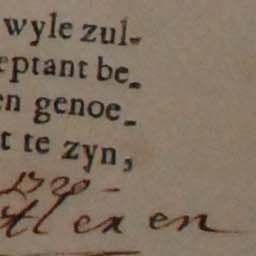 wyle zul-
eptant be-
en genoe-
t te zyn,
1720 -
Alexen